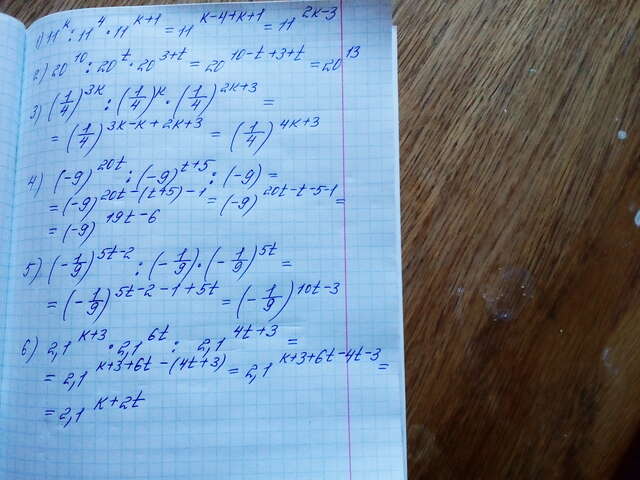 1) 11^k : 11^4 · 11^(k+1) = 11^(k-4+k+1) = 11^(2k-3)
2) 20^10 : 20^t · 20^(3+t) = 20^(10-t+3+t) = 20^13
3) (1/4)^(3k) : (1/4)^k · (1/4)^(2k+3) =
= (1/4)^(3k-k+2k+3) = (1/4)^(4k+3)
4) (-9)^(20t) : (-9)^(t+5) : (-9) =
= (-9)^(20t-(t+5)-1) = (-9)^(20t-t-5-1) =
= (-9)^(19t-6)
5) (-1/9)^(5t-2) : (-1/9) · (-1/9)^(5t) =
= (-1/9)^(5t-2-1+5t) = (-1/9)^(10t-3)
6) 2,1^(k+3) · 2,1^(6t) : 2,1^(4t+3) =
= 2,1^(k+3+6t-(4t+3)) = 2,1^(k+3+6t-4t-3) =
= 2,1^(k+2t)